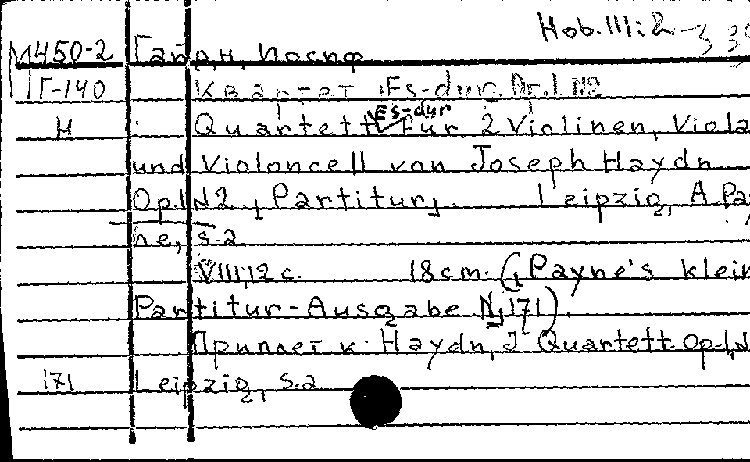 Hob. III: 2
М450-2 Гайдн, Иосиф
Г-140 Квартет Es-dur. Op. 1 №2
H Quartett Es-dur für 2 Violinen, Viola
und Violoncell von Joseph Haydn
Op. 1 N2, Partitur, Leipzig, A. Pay
ne, s.a
VIII, 12 c. 18 cm. (Payne's klein
Partitur-Ausgabe N 171).
Приплет к: Haydn, J Quartett Op. 1, N
171 Leipzig, s.a